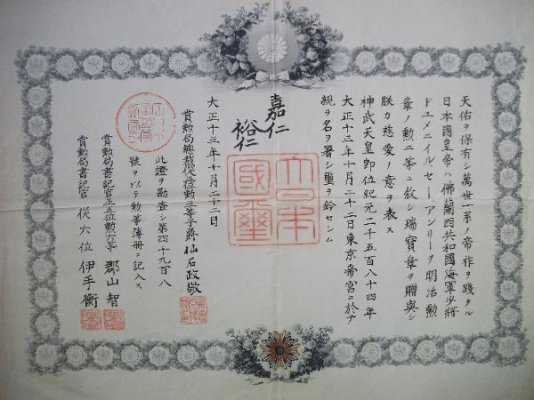 天佑ヲ保有シ萬世一系ノ帝祚ヲ踐タル
日本國皇帝ハ佛蘭西共和國海軍少將
ドユメニイルセーアンリーク明治勲
章ノ勲二等ニ敍シ瑞寶章ヲ贈與シ
朕カ慈愛ノ意ヲ表ス
神武天皇即位紀元二千五百八十四年
大正十三年十月二十二日東京帝宮ニ於テ
親ラ名ヲ署シ璽ヲ鈐セシム
嘉仁
裕仁
大日本
國璽
大正十三年十月二十二日
賞勲局總裁從 位勲 等子爵仙石政敬
此證ヲ勘査シ第四十九百八
號ヲ以テ勲等簿冊ニ記入ス
賞勲局書記官正五位勲六等 郡山智
賞勲局書記官 從六位 伊手衡